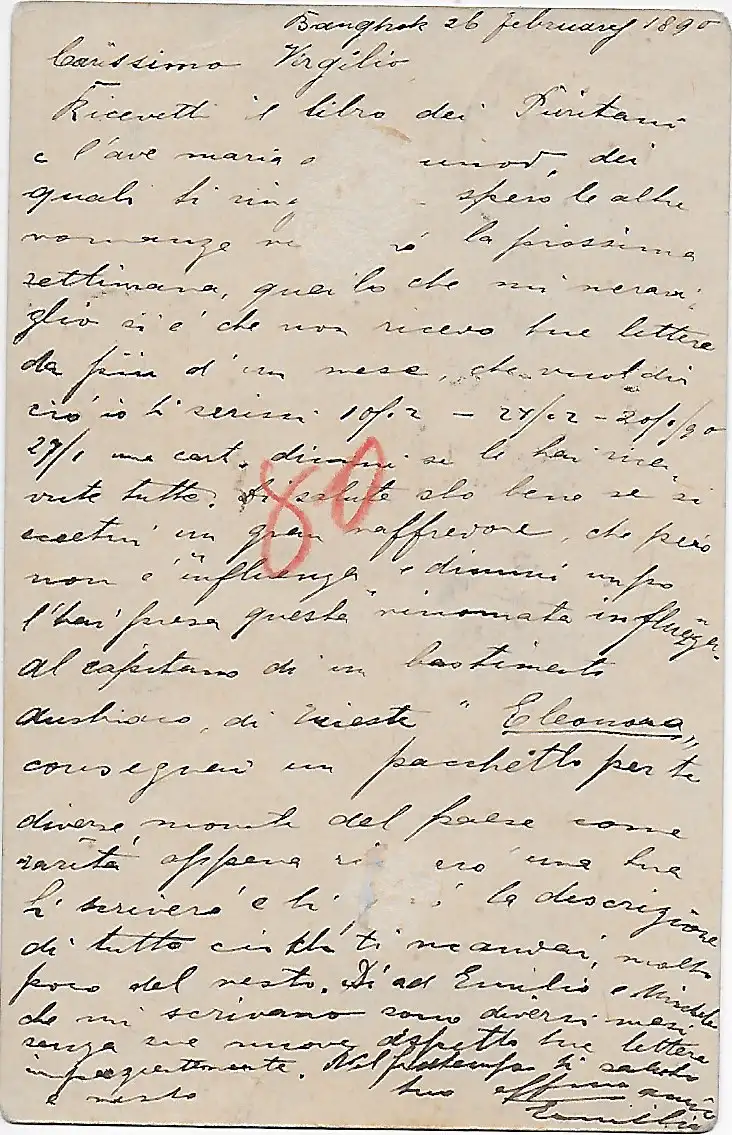 Bangkok 26 february 1890
Carissimo Virgilio
Ricevetti il libro dei Puritani
e l'ave maria unod, dei
quali ti ring spero le altre
romanze la prossima
settimana, quello che mi meravi
glio si é che non ricevo tue lettere
da piu d'un mese, che vuol dir
ció io ti scrissi
27/1 una cart. dimmi se le hai rice
vute tutte. Di salute sto bene se si
eccettui un gran raffredore, che peró
non é "influenza" e dimmi un po
l'hai presa questa rinomata "influenza"
Al capitano di un bastimento
Austriaco, di Trieste "Eleonora"
consegnai un pacchetto per te
diverse monete del paese come
raritá appena ri eró una tua
ti scriveró e ti ró la descrizione
di tutto ció ch'ti mandai, molto
poco del resto. Di ad Emilio e Michele
che mi scrivano sono diversi mesi
senza sue nuove, aspetto tue lettere
impazientemente. Nel frattempo ti saluto
e resto tuo affmo amico
Emilio